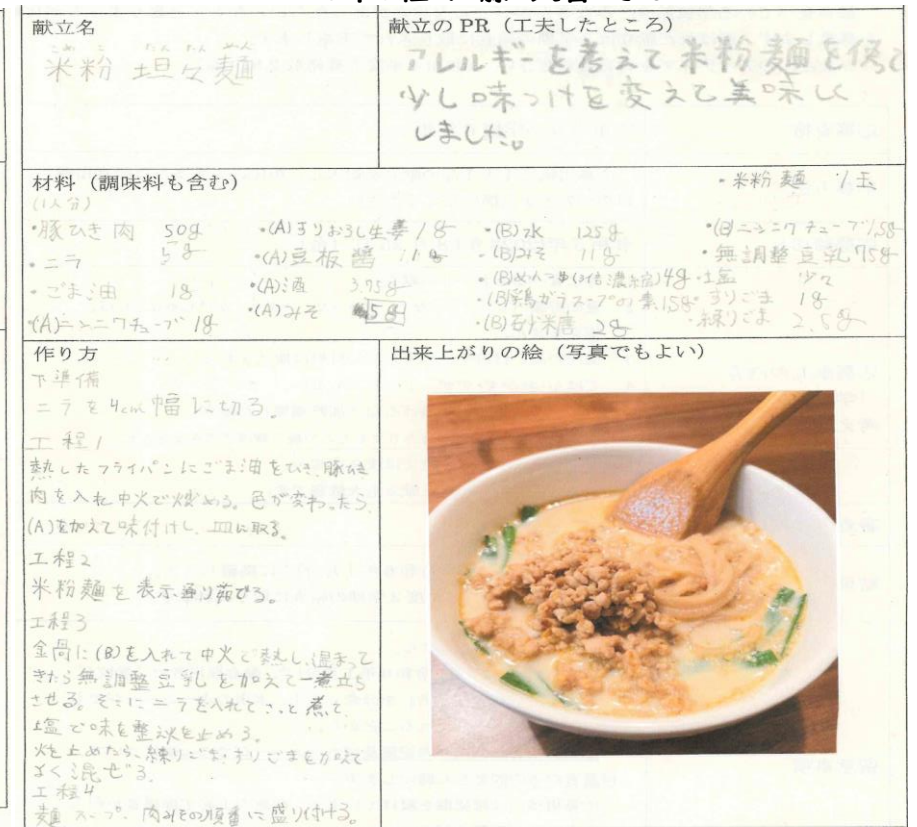 献立名
こめ こ たん たん めん
米粉 坦々麺
献立のPR（工夫したところ）
アレルギーを考えて米粉麺を使って
少し味つけを変えて美味しく
しました。
材料（調味料も含む）
(1人分)
・豚ひき肉 50g
・ニラ 5g
・ごま油 1g
・(A)ニンニクチューブ 1g
・(A)すりおろし生姜 1g
・(A)豆板醤
・(A)酒 3.75g
・(A)みそ 5g
・(B)水 125g
・(B)みそ 11g
・(B)めんつゆ(4倍濃縮) 4g
・(B)鶏ガラスープの素 1.5g
・(B)砂糖 2g
・米粉麺 1玉
・(B)ニンニクチューブ 1.5g
・無調整豆乳 75g
・塩 少々
・すりごま 1g
・練りごま 2.5g
作り方
下準備
ニラを4cm幅に切る。
工程1
熱したフライパンにごま油をひき、豚ひき
肉を入れ中火で炒める。色が変わったら、
(A)を加えて味付けし、皿に取る。
工程2
米粉麺を表示通り茹でる。
工程3
(B)を入れて中火で熱し、温まって
きたら無調整豆乳を加えて一煮立ち
させる。そこにニラを入れてさっと煮て
塩で味を整え火を止める。
火を止めたら、練りごま・すりごまを加えて
よく混ぜる。
工程4
麺、スープ、肉みその順番に盛り付ける。
出来上がりの絵（写真でもよい）